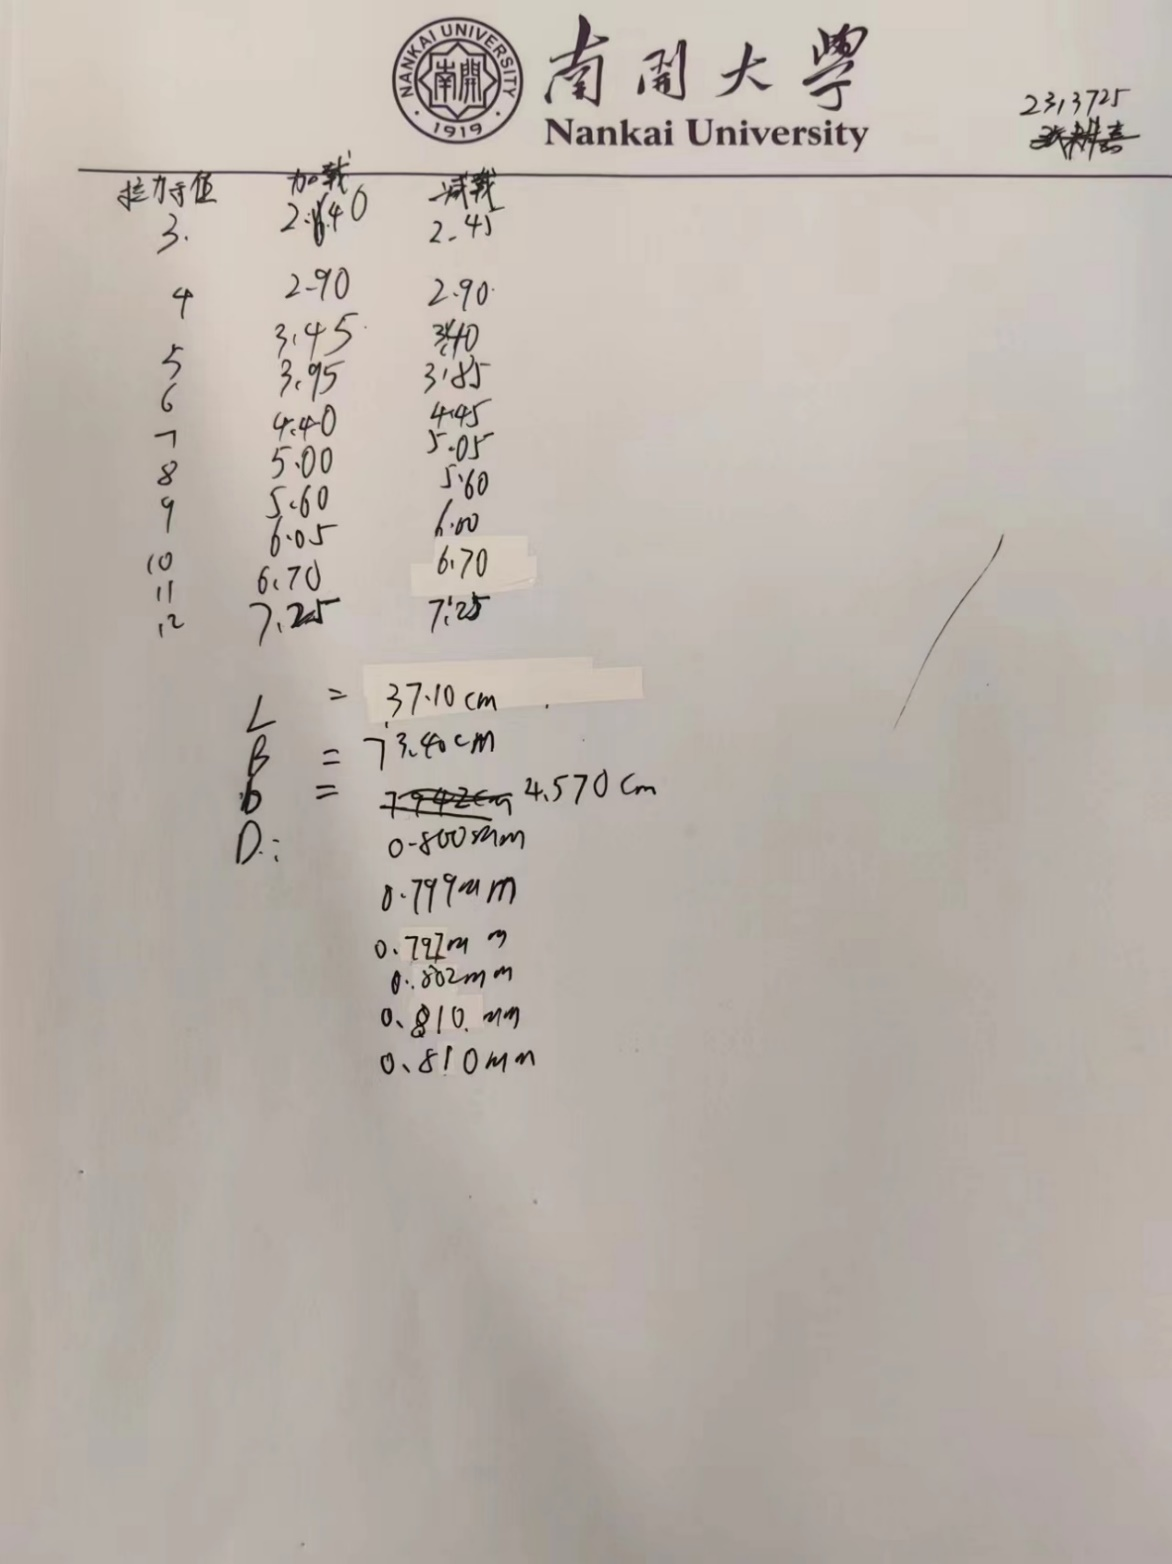 NANKAI UNIVERSITY
南開
1919
南開大學
Nankai University
2313725
拉力示值 加载 减载
3. 2.40 2.45
4 2.90 2.90
5 3.45 3.40
6 3.95 3.85
7 4.40 4.45
8 5.00 5.05
9 5.60 5.60
10 6.05 6.00
11 6.70 6.70
12 7.25 7.25
L = 37.10 cm
B = 73.40 cm
b = 7942cm 4.570 cm
D: 0.800mm
0.799mm
0.797mm
0.802mm
0.810 mm
0.810mm